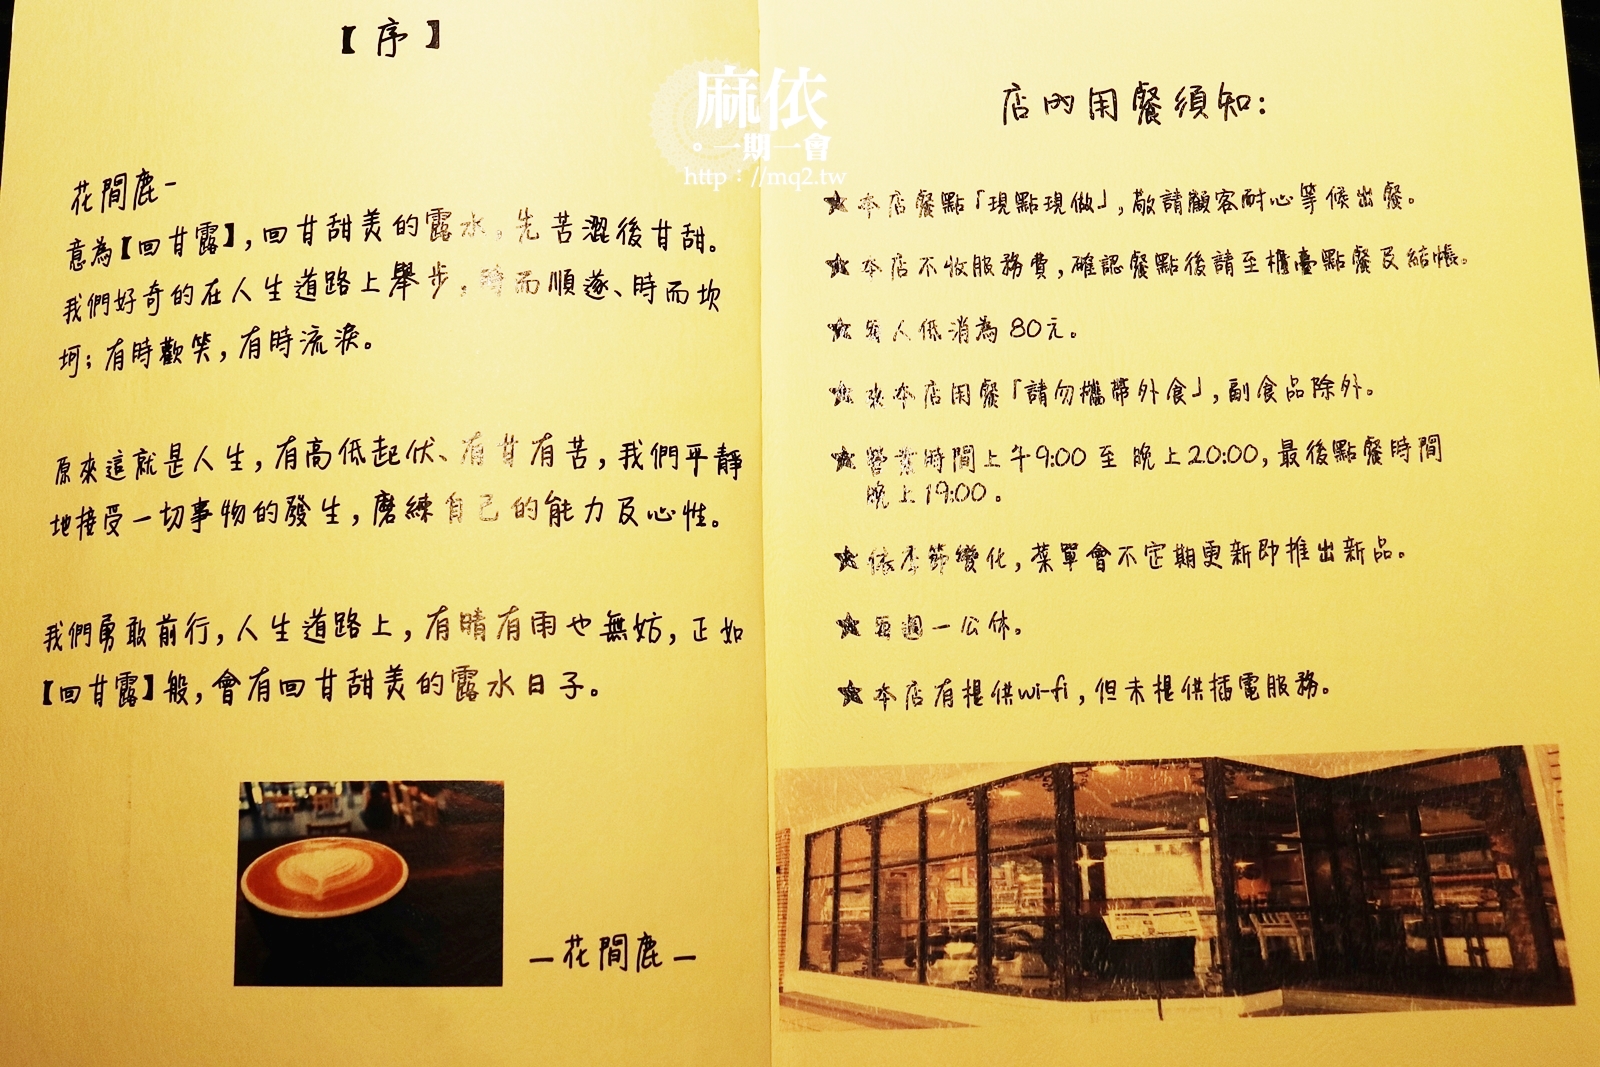 【序】
花間鹿－
意為【回甘露】，回甘甜美的露水，先苦澀後甘甜。
我們好奇的在人生道路上舉步，時而順遂、時而坎
坷；有時歡笑，有時流淚。
原來這就是人生，有高低起伏、有甘有苦，我們平靜
地接受一切事物的發生，磨練自己的能力及心性。
我們勇敢前行，人生道路上，有晴有雨也無妨，正如
【回甘露】般，會有回甘甜美的露水日子。
－花間鹿－
麻依
。一期一會
http：//mq2.tw
店內用餐須知：
★本店餐點「現點現做」，敬請顧客耐心等候出餐。
★本店不收服務費，確認餐點後請至櫃臺點餐及結帳。
★每人低消為80元。
★來本店用餐「請勿攜帶外食」，副食品除外。
★營業時間上午9:00至晚上20:00，最後點餐時間
晚上19:00。
★依季節變化，菜單會不定期更新即推出新品。
★每週一公休。
★本店有提供wi-fi，但未提供插電服務。